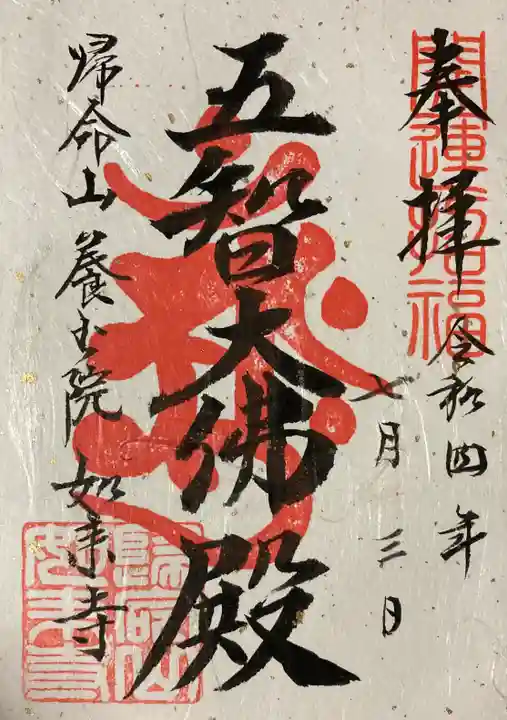 奉拝
令和四年
七月三日
五智大佛殿
帰命山養玉院如来寺
開運招福
帰命山
如来寺